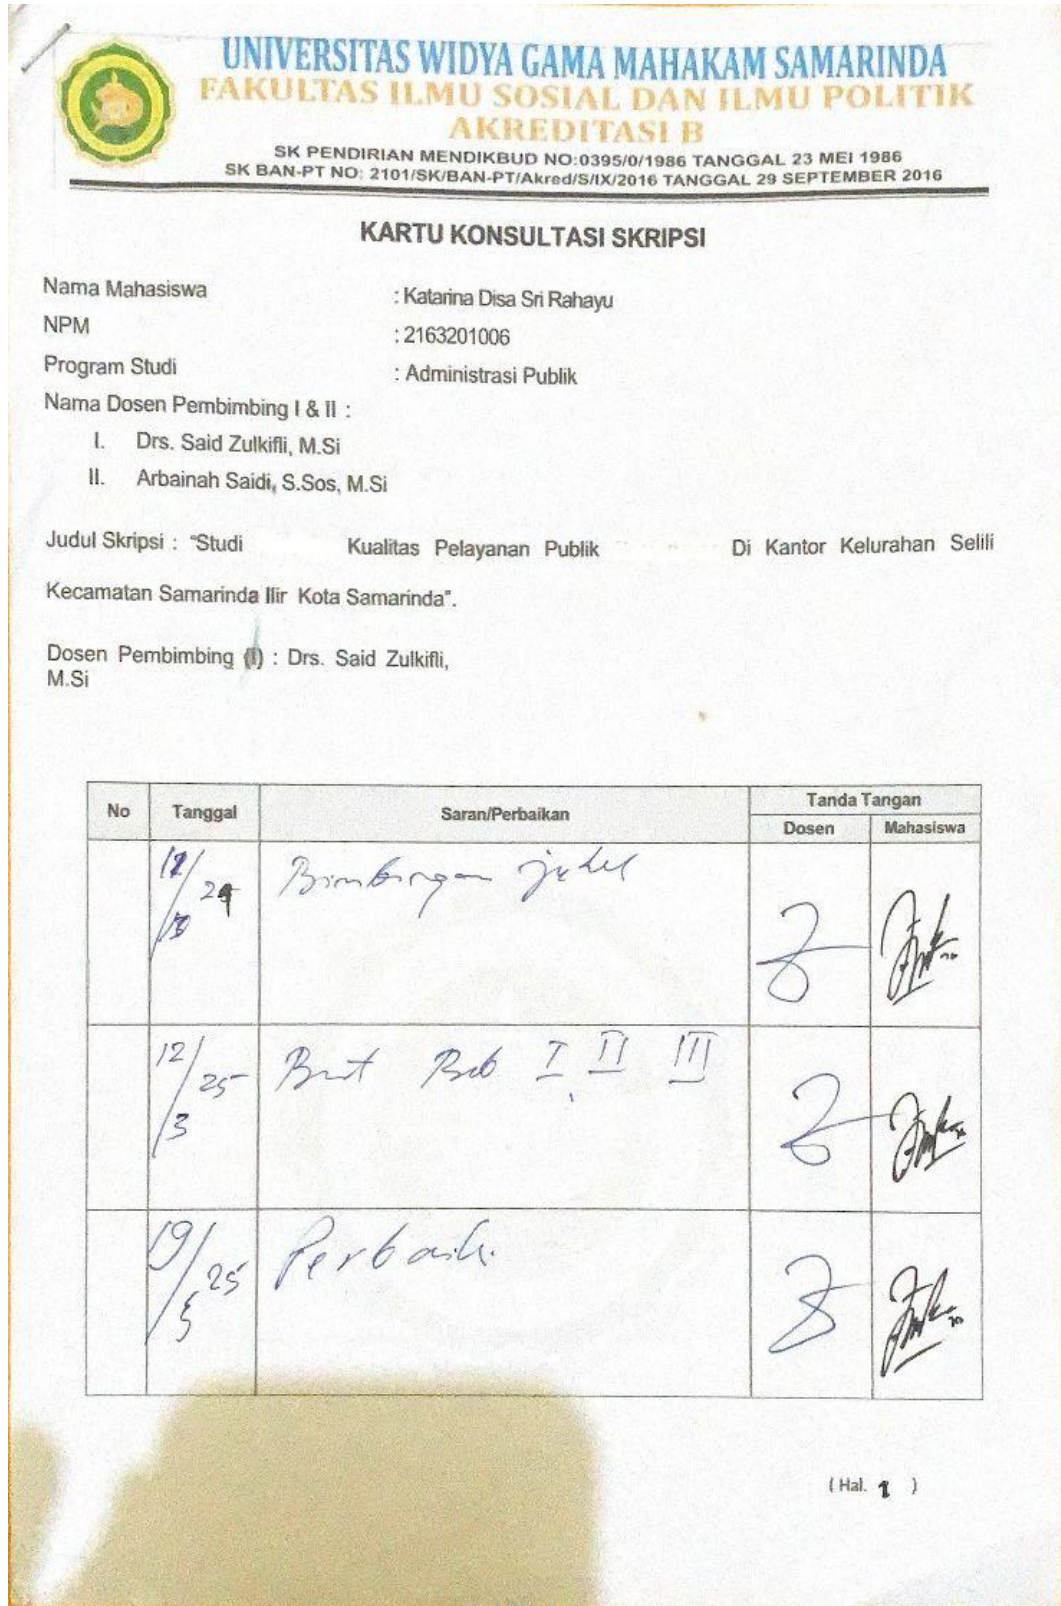 UNIVERSITAS WIDYA GAMA MAHAKAM SAMARINDA
FAKULTAS ILMU SOSIAL DAN ILMU POLITIK
AKREDITASI B
SK PENDIRIAN MENDIKBUD NO:0395/0/1986 TANGGAL 23 MEI 1986
SK BAN-PT NO: 2101/SK/BAN-PT/Akred/S/IX/2016 TANGGAL 29 SEPTEMBER 2016
KARTU KONSULTASI SKRIPSI
Nama Mahasiswa : Katarina Disa Sri Rahayu
NPM : 2163201006
Program Studi : Administrasi Publik
Nama Dosen Pembimbing I & II :
I. Drs. Said Zulkifli, M.Si
II. Arbainah Saidi, S.Sos, M.Si
Judul Skripsi : "Studi Kualitas Pelayanan Publik Di Kantor Kelurahan Selili
Kecamatan Samarinda Ilir Kota Samarinda".
Dosen Pembimbing (I) : Drs. Said Zulkifli,
M.Si
No Tanggal Saran/Perbaikan Tanda Tangan
Dosen Mahasiswa
Bimbingan judul
12/3 25 Bab I II III
19/5 25 Perbaiki
( Hal. 1 )